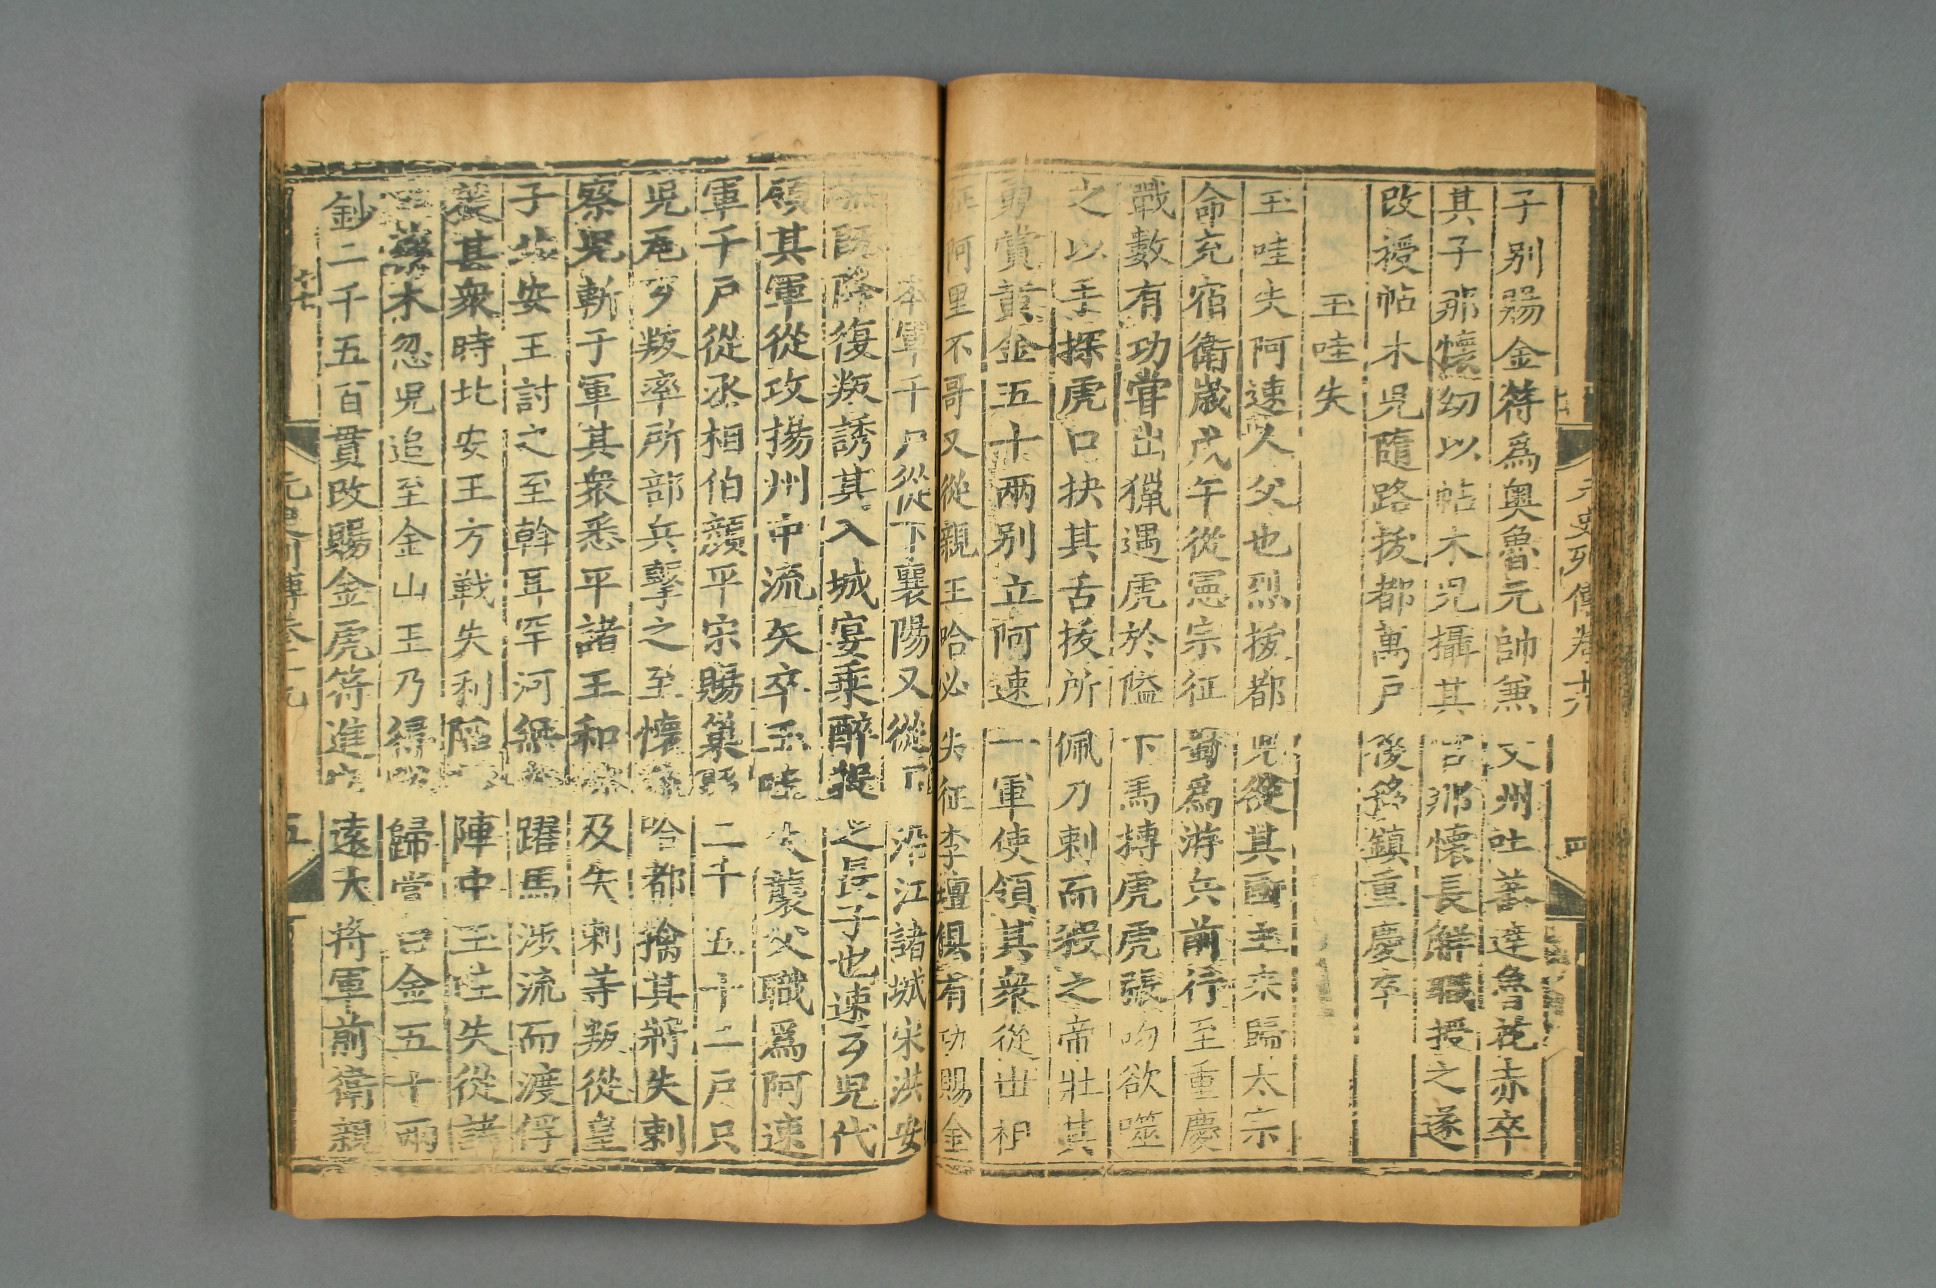 元史列傳卷十六 四
子别賜金符爲奥魯元帥兼文州吐蕃達魯花赤卒
其子那懷幼以帖木兒攝其官那懷長解職授之遂
改授帖木兒隨路拔都萬戶後移鎮重慶卒
玉哇失
玉哇失阿速人父也烈拔都兒從其國主來歸太宗
命充宿衛歲戊午從憲宗征蜀爲游兵前行至重慶
戰數有功嘗出獵遇虎於隘下馬搏虎虎張吻欲噬
之以手探虎口抉其舌拔所佩刀刺而殺之帝壯其
勇賞黄金五十兩别立阿速一軍使領其衆從世祖
征阿里不哥又從親王哈必失征李壇俱有功賜金
本軍千戶從下襄陽又從下沿江諸城宋洪安
撫既降復叛誘其入城宴乘醉殺之長子也速歹兒代
領其軍從攻揚州中流矢卒玉哇失襲父職爲阿速
軍千戶從丞相伯顏平宋賜巢縣二千五十二戶只
兒瓦歹叛率所部兵擊之至懷魯哈都擒其將失剌
察兒斬于軍其衆悉平諸王和林及失剌等叛從皇
子北安王討之至斡耳罕河無舟躍馬涉流而渡俘
獲甚衆時北安王方戰失利陷敵陣中玉哇失從諸
王藥木忽兒追至金山王乃得脫歸賞白金五十兩
鈔二千五百貫改賜金虎符進定遠大將軍前衛親
元史列傳卷十九 五